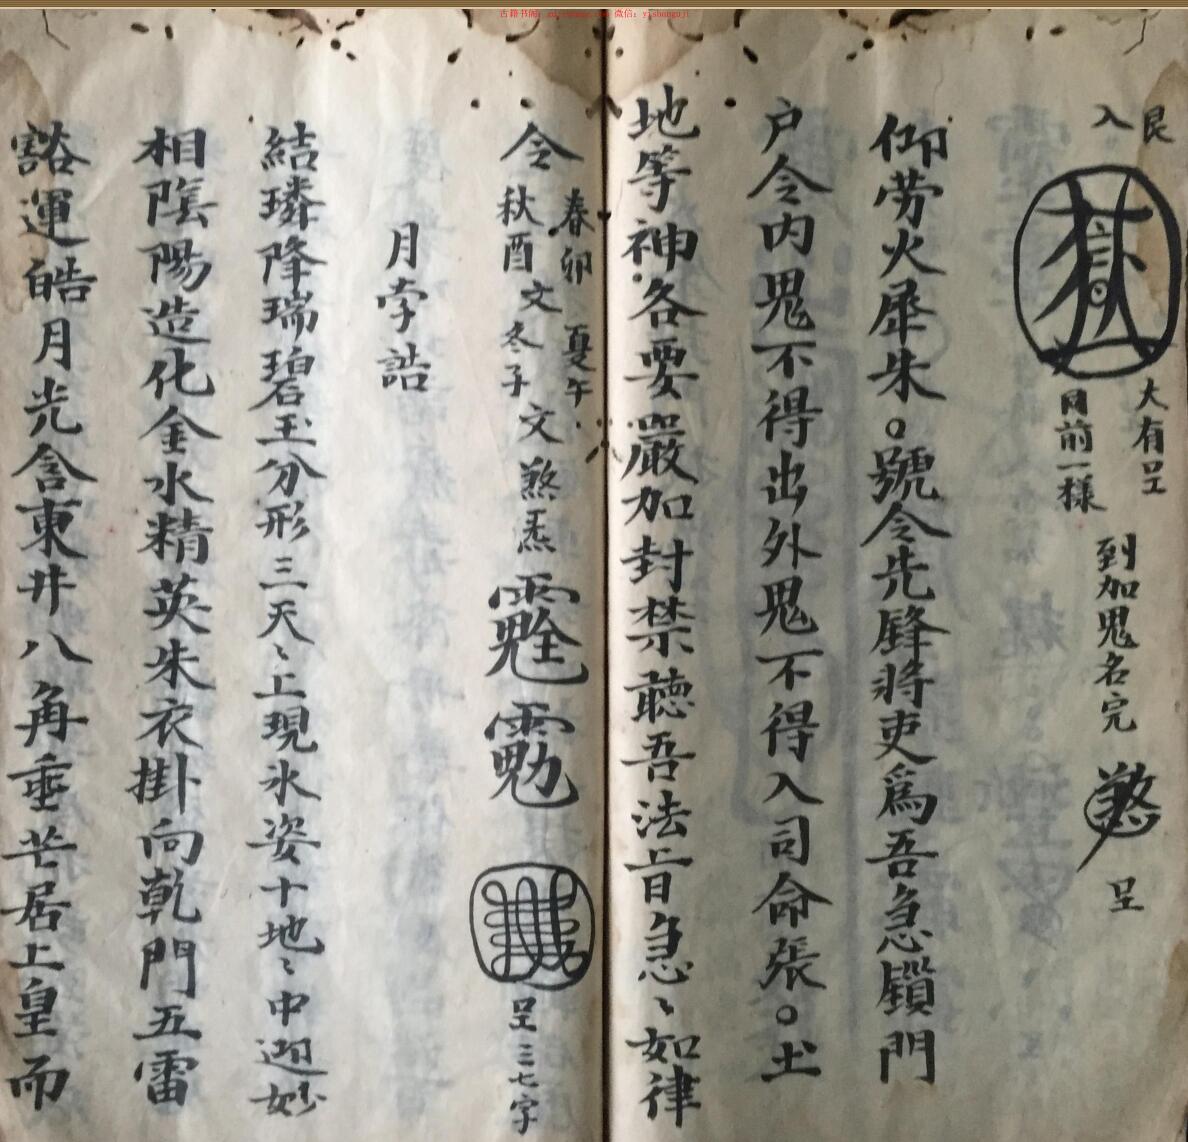 古籍书阁: 微信: yishenguji
艮
入
大有呈
月前一様
到加鬼名完
煞
呈
仰劳火犀朱。號令先鋒将吏爲吾急鎖門
户令内鬼不得出外鬼不得入司命張。土
地等神各要嚴加封禁聽吾法旨急〻如律
令
春卯
秋酉
文
夏午
冬子
文
煞炁
呈三七字
月孛誥
結璘降瑞碧玉分形三天〻上現氷姿十地〻中迎妙
相陰陽造化金水精英朱衣掛向乾門五雷
豁運皓月光含東井八角垂芒居上皇而